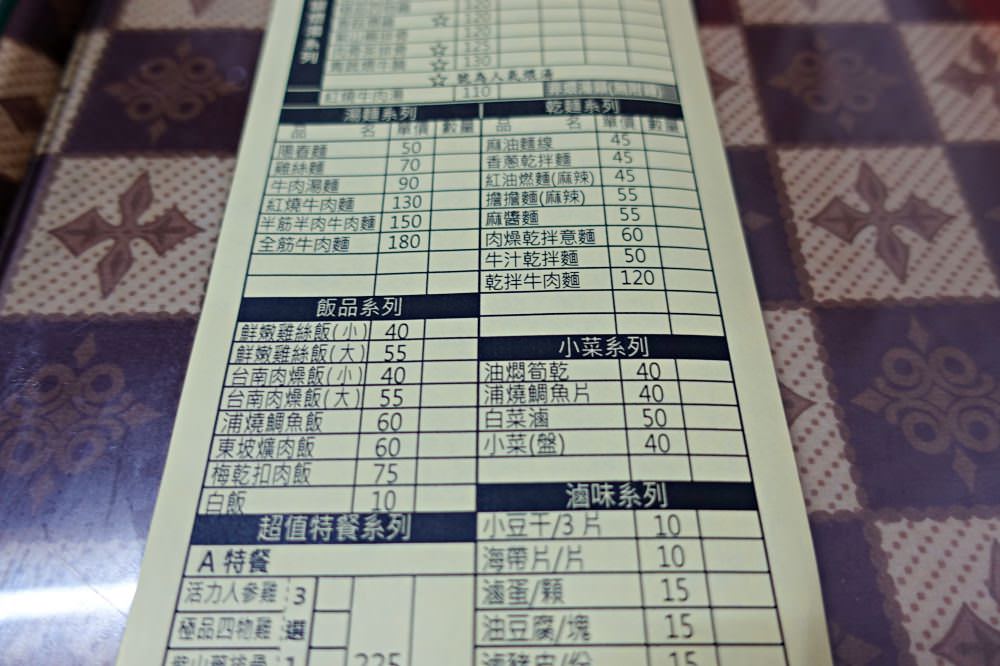 120
120
120
125
130
☆ 號為人氣燉湯
紅燒牛肉湯 110
湯麵系列
品 名 單價 數量
陽春麵 50
雞絲麵 70
牛肉湯麵 90
紅燒牛肉麵 130
半筋半肉牛肉麵 150
全筋牛肉麵 180
飯品系列
鮮嫩雞絲飯(小) 40
鮮嫩雞絲飯(大) 55
台南肉燥飯(小) 40
台南肉燥飯(大) 55
浦燒鯛魚飯 60
東坡爌肉飯 60
梅乾扣肉飯 75
白飯 10
超值特餐系列
A 特餐
活力人參雞 3
極品四物雞 選
1 225
乾麵系列
品 名 單價 數量
麻油麵線 45
香蔥乾拌麵 45
紅油燃麵(麻辣) 45
擔擔麵(麻辣) 55
麻醬麵 55
肉燥乾拌意麵 60
牛汁乾拌麵 50
乾拌牛肉麵 120
小菜系列
油燜筍乾 40
浦燒鯛魚片 40
白菜滷 50
小菜(盤) 40
滷味系列
小豆干/3 片 10
海帶片/片 10
滷蛋/顆 15
油豆腐/塊 15
滷豬皮/份 15